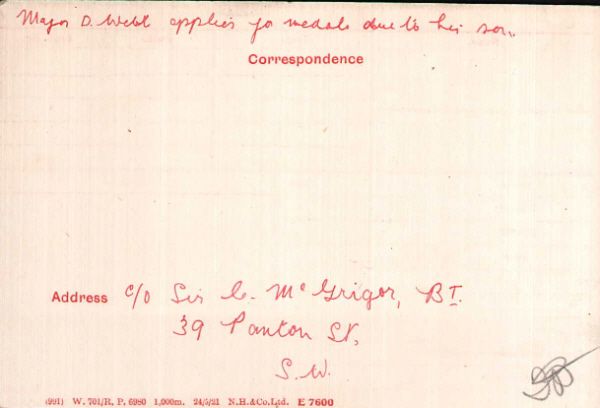 Major D. Webb applies for medals due to his son.
Correspondence
Address c/o Sir C. McGrigor, BT.
39 Panton St.
S.W.
(991) W. 701/R. P. 6980 1,000m. 24/5/21 N.H.&Co.Ltd. E 7600